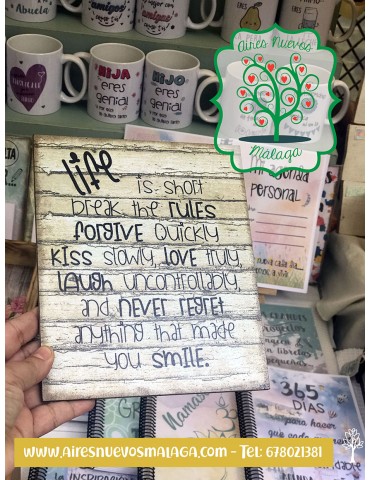 Abuela
amigos
AIRES NUEVOS
MÁLAGA
HIJA
eres
genial
HIJO
eres
genial
life
is short
break the RULES
FORGIVE QUICKLY
KISS slowly, LOVE truly,
LAUGH uncontrollably,
and NEVER REGRET
anything that made
you SMILE.
agenda
personal
365
DÍAS
para hacer
www.airesnuevosmalaga.com - Tel: 678021381